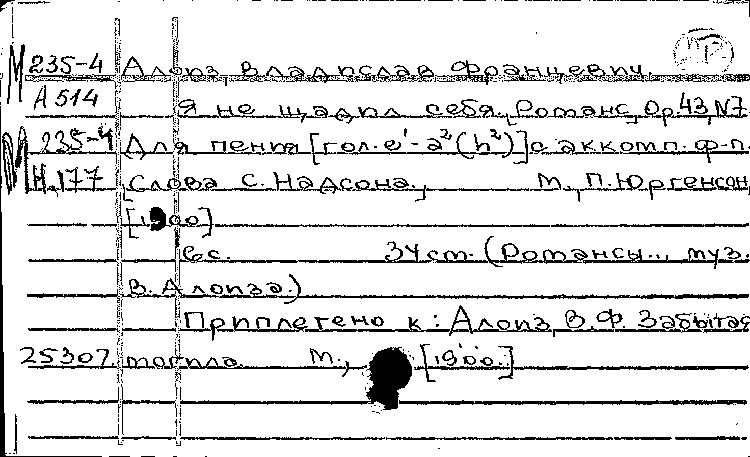 М 235-4 Алоиз, Владислав Францевич.
А 514 Я не щадил себя. [Романс], Op. 43, N7.
М 235-4 Для пения [гол. e¹-a²(h²)] с аккомп. ф-п.
Н. 177 [Слова С. Надсона.], М., П. Юргенсон,
[1900]
6 с. 34 ст. (Романсы... муз.
В. Алоиза.)
Приплетено к: Алоиз, В. Ф. Забытая
25307. могила. М., [1900.]